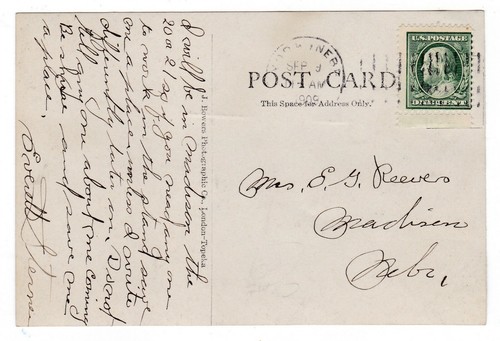 I will be in Madison the
20 or 21 so if you need any one
to work in the stand save
me a place unless I write
differently later on. Do not
tell any one about me coming
Be sure and save me
a place.
Sterner
J. Bowers Photographic Co., London-Topeka
NEBR
SEP 9
AM
POST CARD
This Space for Address Only.
U.S. POSTAGE
ONE CENT
Mrs. E. G. Reeves
Madison
Nebr,